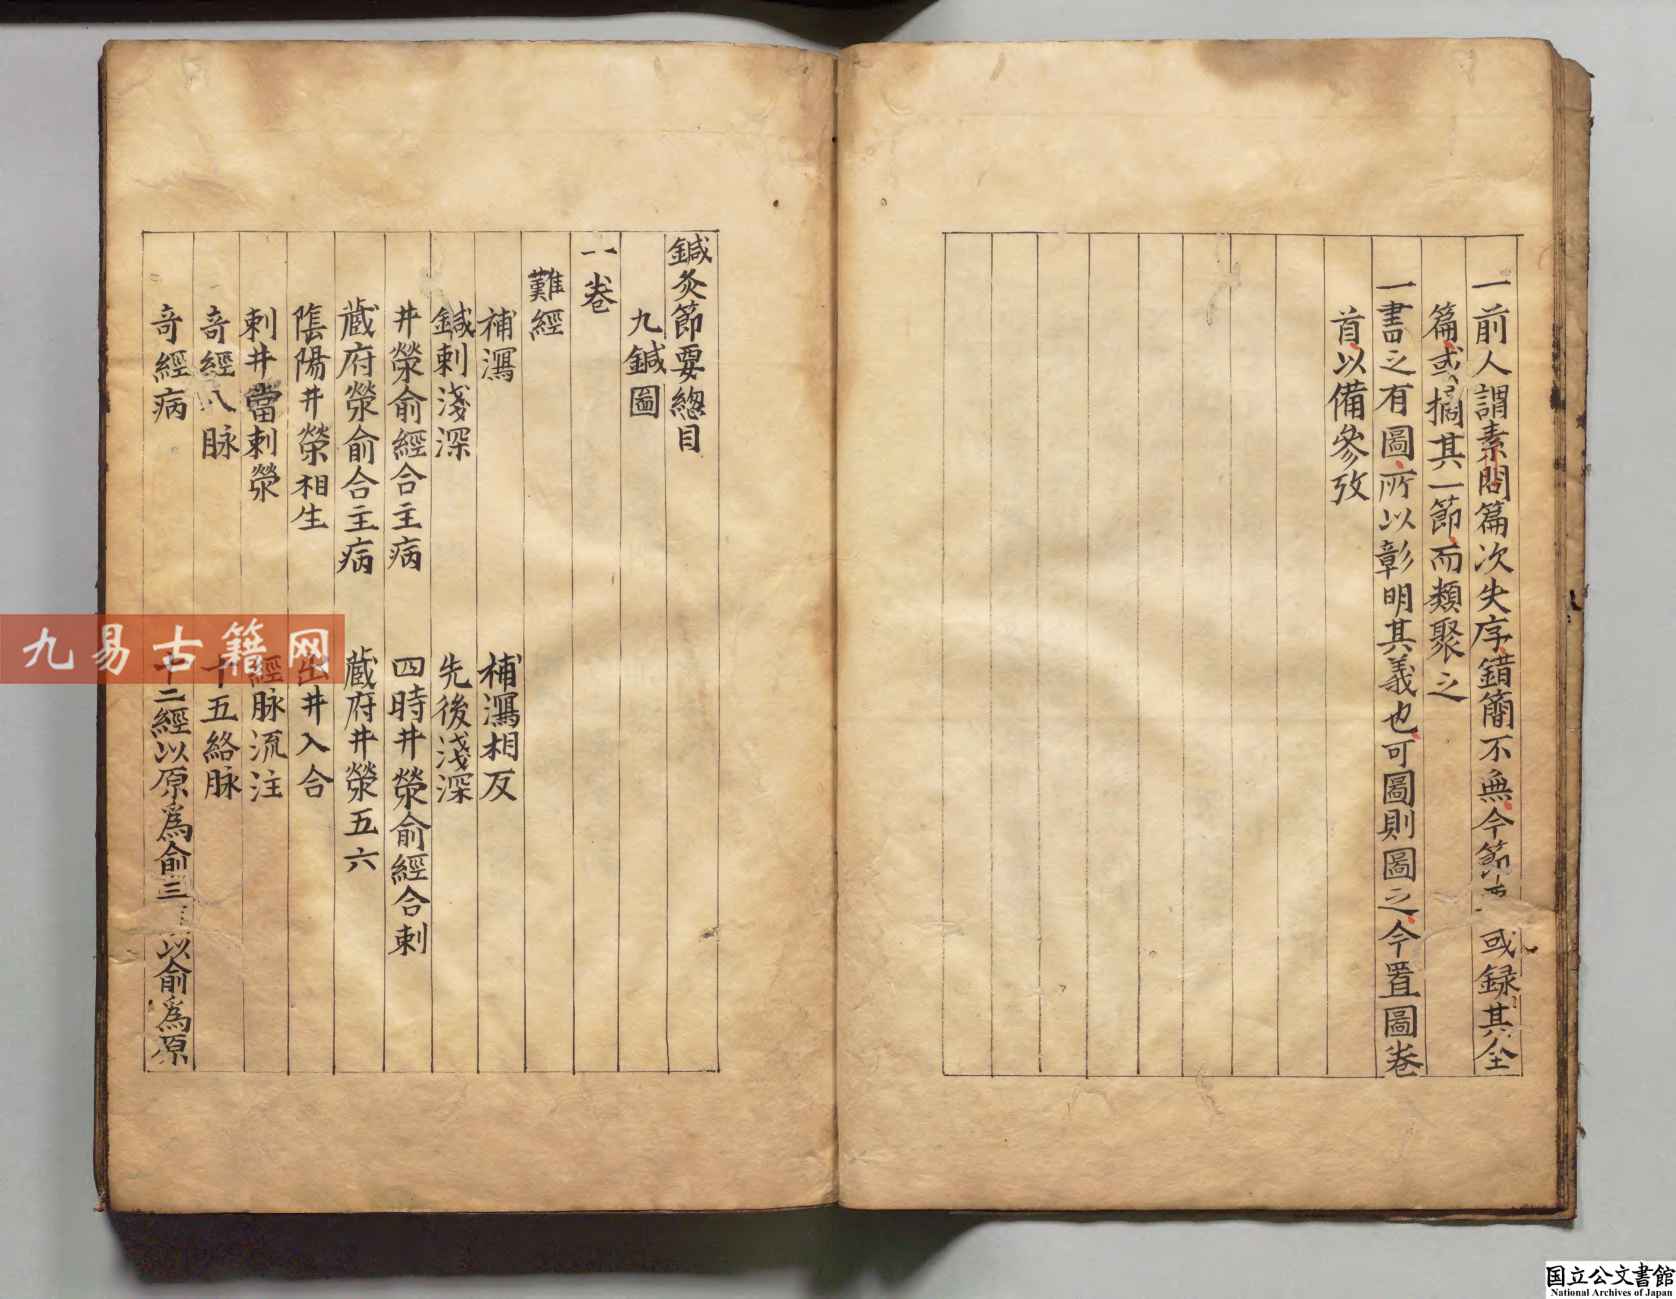 一前人謂素問篇次失序錯簡不無今節或錄其全
篇或摘其一節而類聚之
一書之有圖所以彰明其義也可圖則圖之今置圖卷
首以備參攷
鍼灸節要緫目
九鍼圖
一卷
難經
補瀉　補瀉相反
鍼刺淺深　先後淺深
井滎俞經合主病　四時井滎俞經合刺
藏府滎俞合主病　藏府井滎五六
陰陽井滎相生　出井入合
刺井當刺滎　經脉流注
竒經八脉　十五絡脉
竒經病　十二經以原爲俞三以俞爲原
九易古籍网
国立公文書館
National Archives of Japan